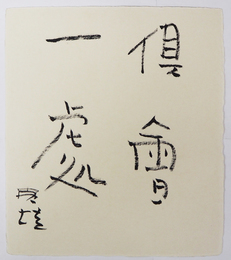 倶會
一處